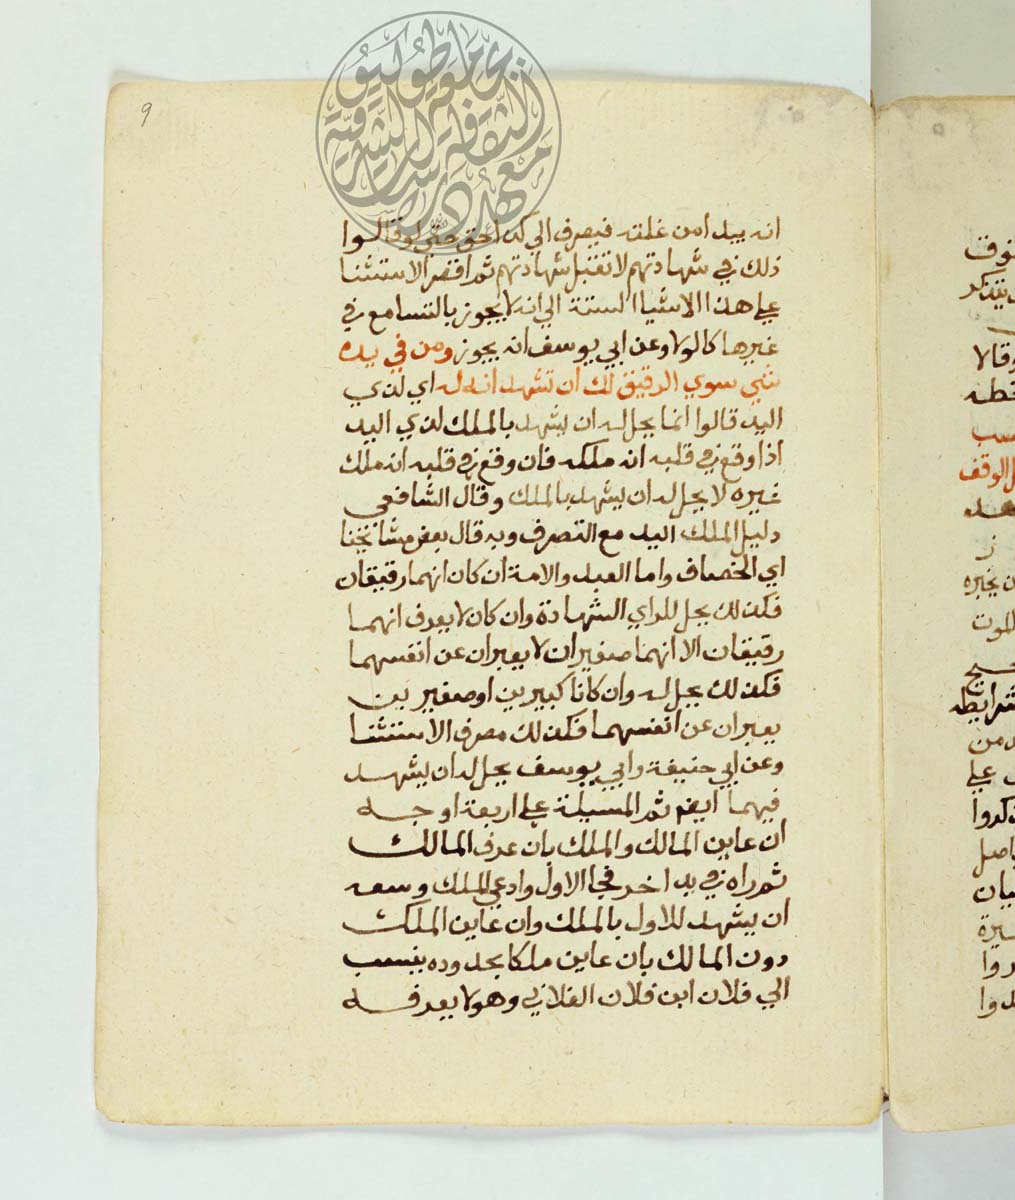 9
انه يبدا من غلته فيصرف الي كذا لحق حتي لو قالوا
ذلك في شهادتهم لا تقبل شهادتهم ثم اقصر الاستثنا
علي هذا الاشيا الستة الي انه لا يجوز بالتسامع في
غيرها كالولا وعن ابي يوسف انه يجوز ومن في يده
شي سوي الرقيق لك ان تشهد انه له اي لذي
اليد قالوا انما يحل له ان يشهد بالملك لذي اليد
اذا وقع في قلبه انه ملكه فان وقع في قلبه انه ملك
غيره لا يحل له ان يشهد بالملك وقال الشافعي
دليل الملك اليد مع التصرف وبه قال بعض مشائخنا
اي الخصاف واما العبد والامة ان كان انهما رقيقان
فكذلك يحل للراي الشهادة وان كان لا يعرف انهما
رقيقان الا انهما صغيران لا يعبران عن انفسهما
فكذلك يحل له وان كانا كبيرين او صغيرين
يعبران عن انفسهما فكذلك مصرف الاستثنا
وعن ابي حنيفة وابي يوسف يحل له ان يشهد
فيهما ايضم ثم المسيلة علي اربعة اوجه
ان عاين المالك والملك بان عرف المالك
ثم راه في يد اخر فجا الاول وادعي الملك وسعه
ان يشهد للاول بالملك وان عاين الملك
دون المالك بان عاين ملكا بحدوده ينسب
الي فلان ابن فلان الفلاني وهو لا يعرفه
وقالا
سب
ل الوقف
الموت
شرايطه
علي
كروا
بيان